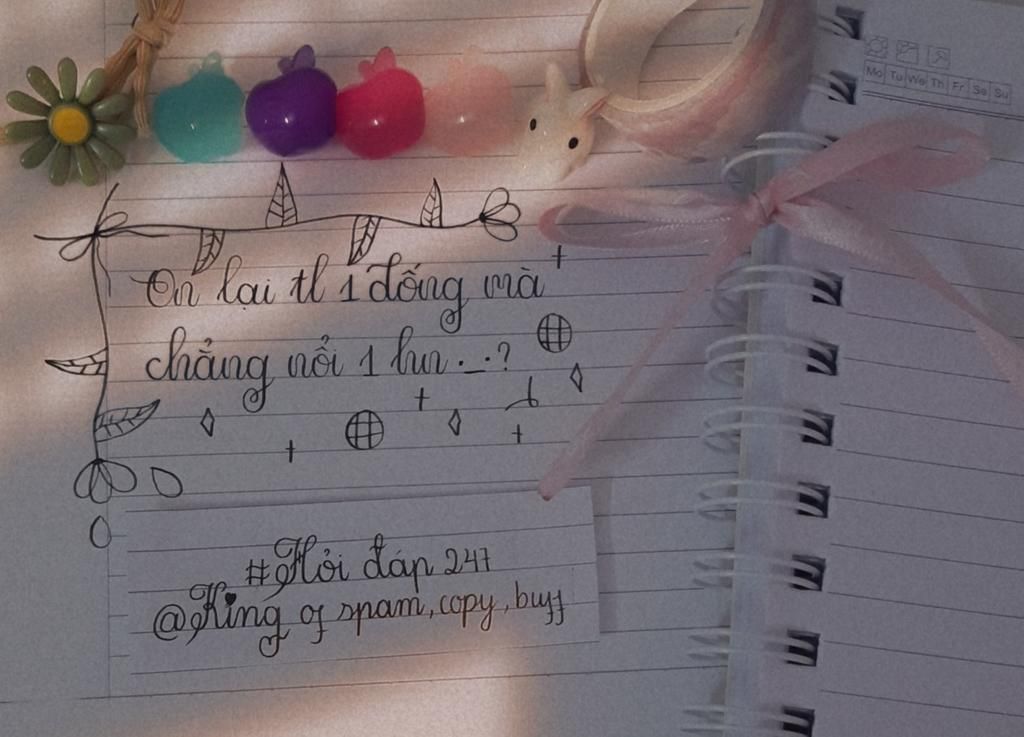 Mo Tu We Th Fr Sa Su
On lại tl 1 đống mà
chẳng nổi 1 lun ._.?
#Hỏi đáp 247
@King of spam, copy, buff